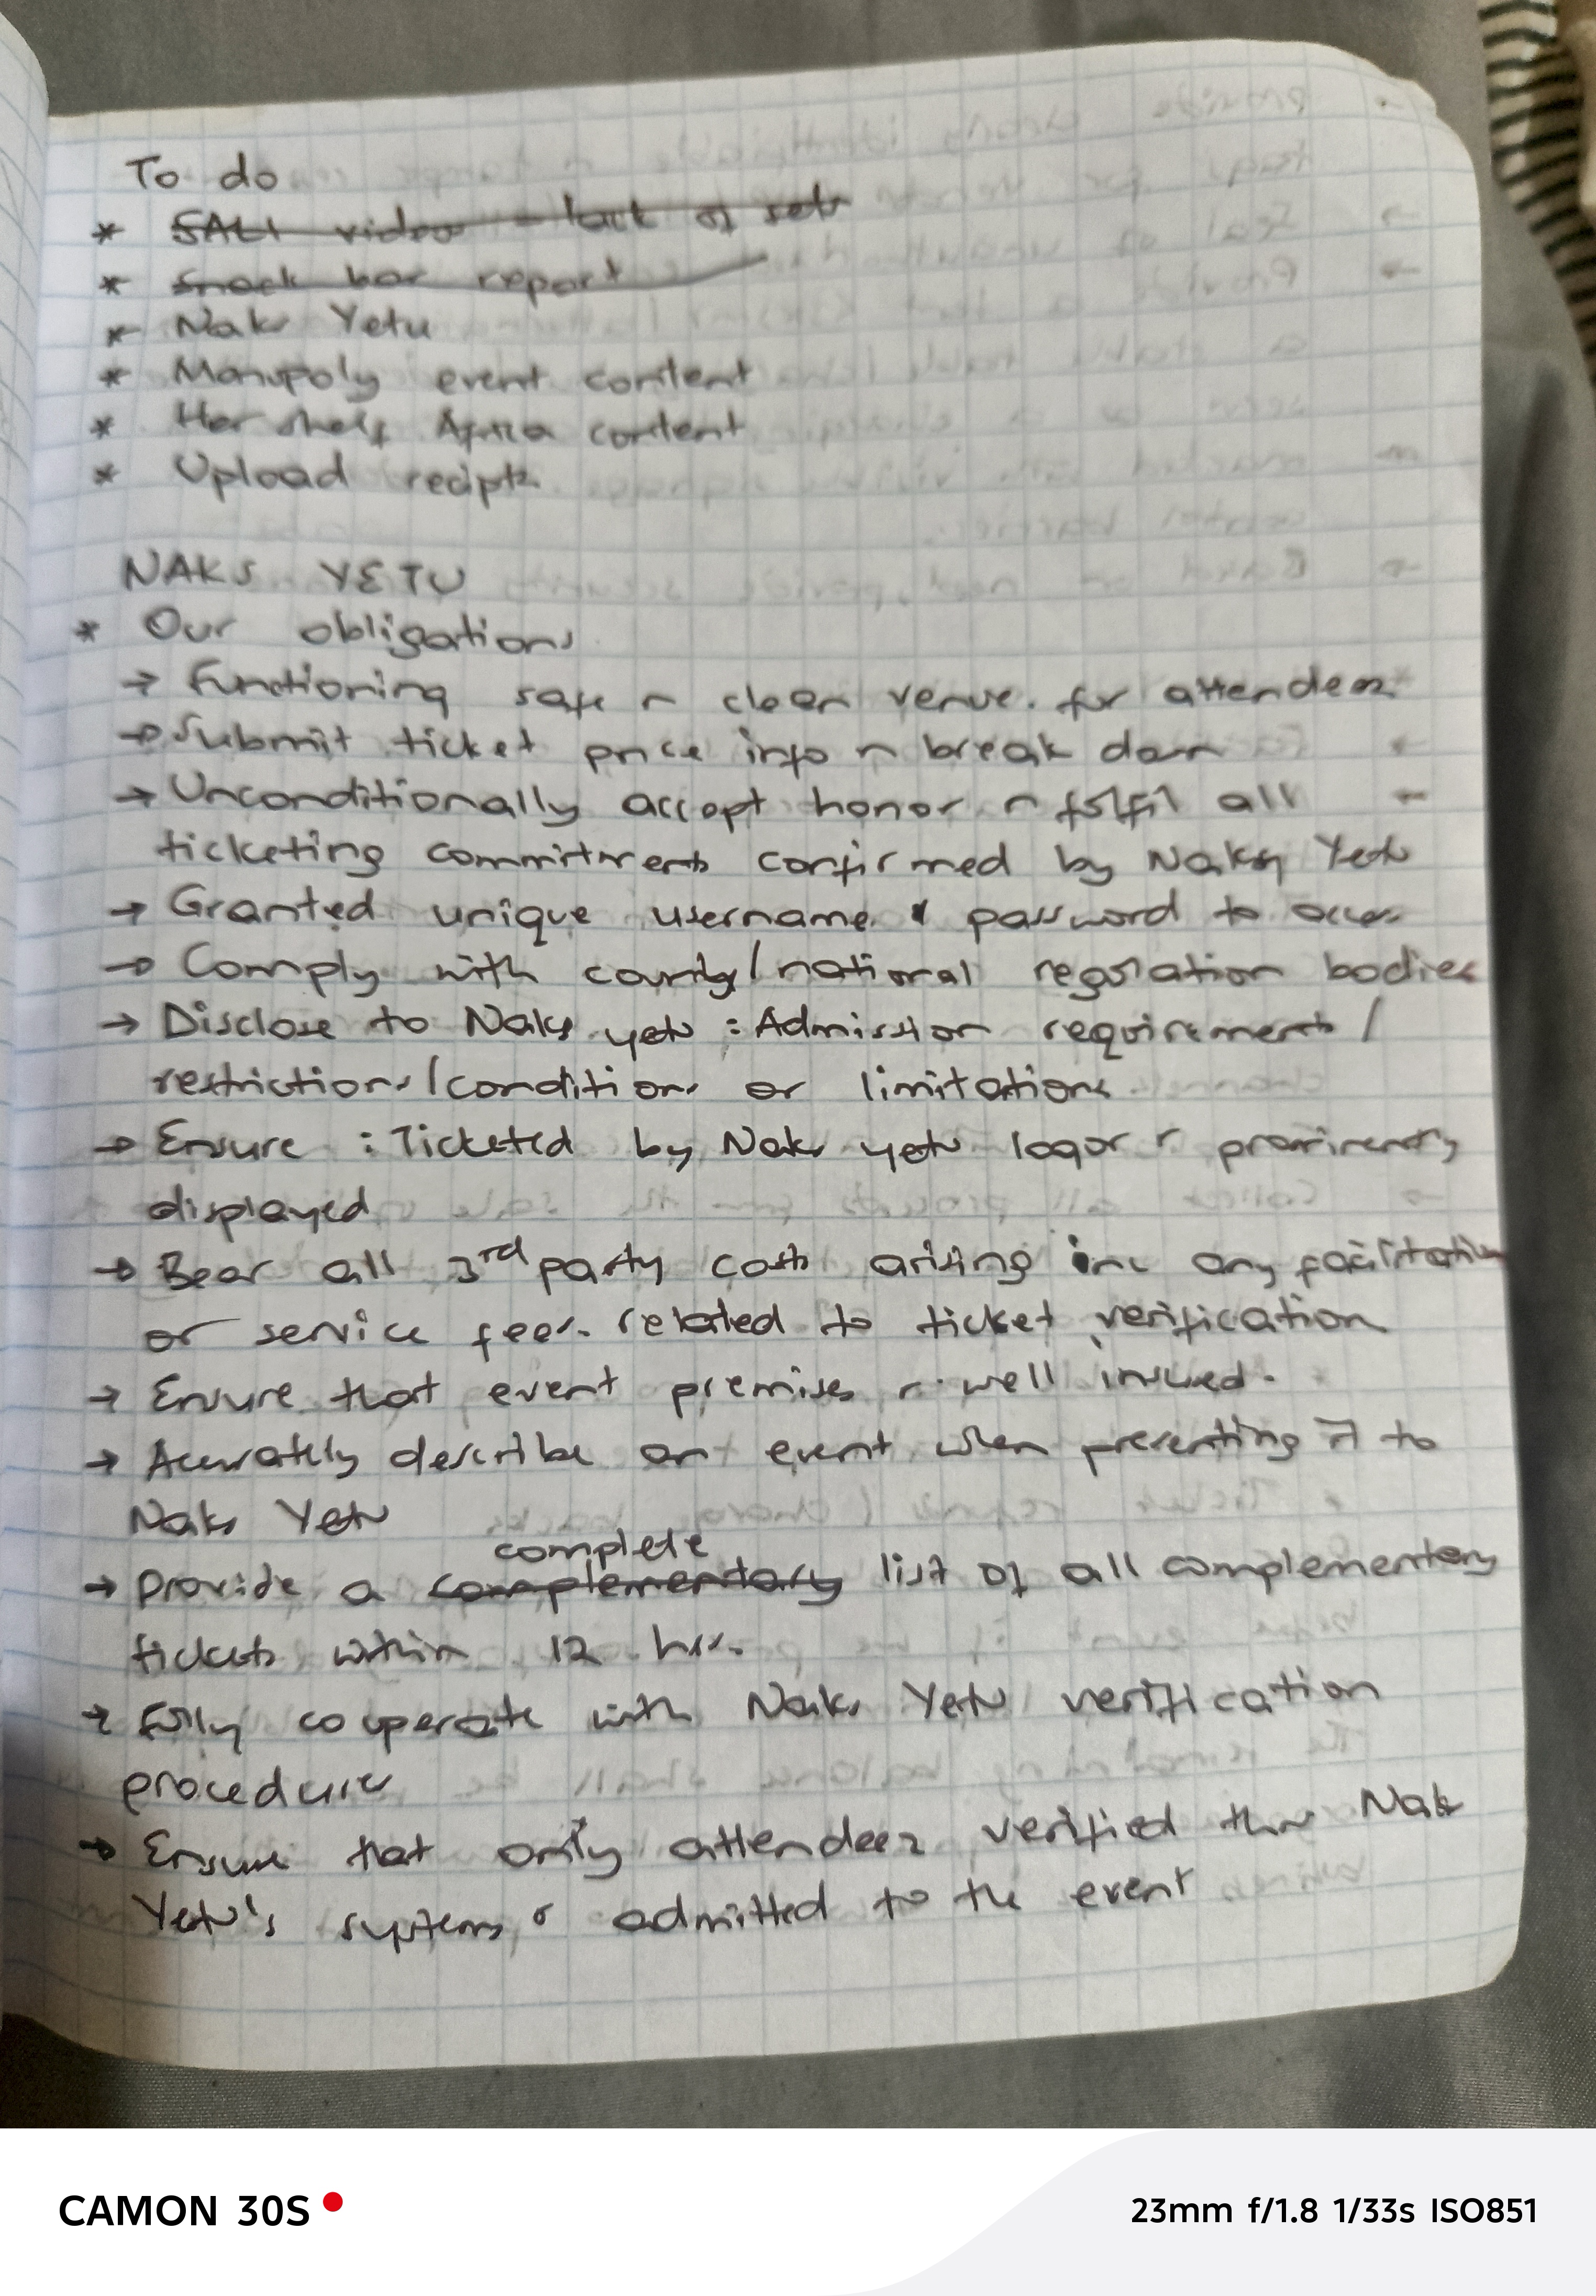 To do
* video - lack of
* Snack bar report
* Naks Yetu
* Monopoly event content
* Her shelf Africa content
* Upload recipts
NAKS YETU
* Our obligations
→ Functioning safe n clean venue. for attendees
→ Submit ticket price info n break down
→ Unconditionally accept honor n fulfil all
ticketing commitments confirmed by Naks Yetu
→ Granted unique username & password to access
→ Comply with county/national regulation bodies
→ Disclose to Naks yetu : Admission requirements/
restrictions/conditions or limitations
→ Ensure : Ticketed by Naks yetu logos r prominently
displayed
→ Bear all 3rd party costs arising inc any facilitation
or service fees. related to ticket verification
→ Ensure that event premises r well insured.
→ Accurately describe an event when presenting it to
Naks Yetu
complete
→ Provide a complementary list of all complementary
tickets within 12 hrs.
→ Fully cooperate with Naks Yetu verification
procedures
→ Ensure that only attendees verified thru Naks
Yetu's systems r admitted to the event
CAMON 30S
23mm f/1.8 1/33s ISO851